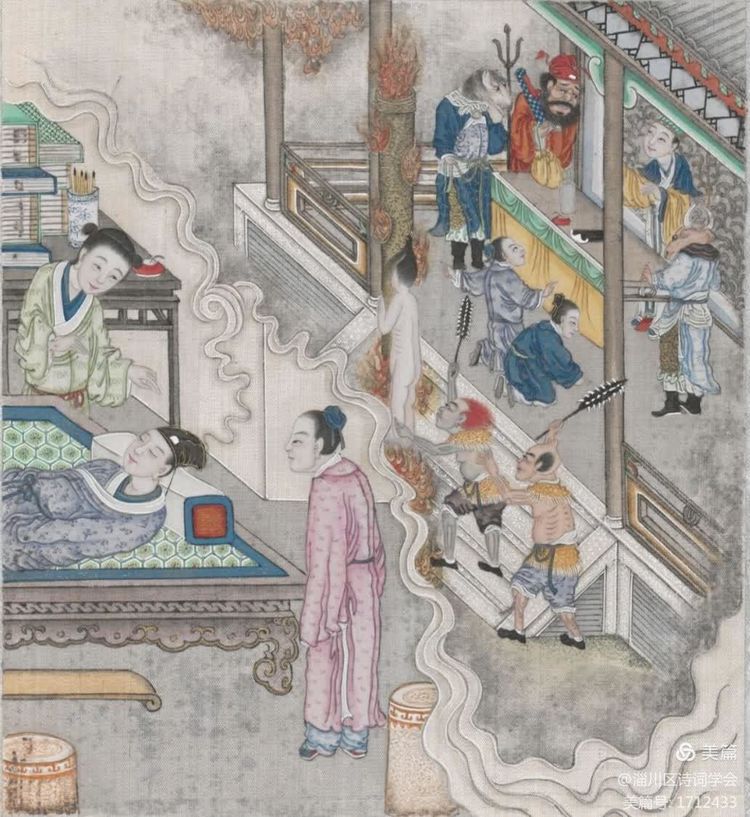 美篇
@淄川区诗词学会
美篇号: 1712433